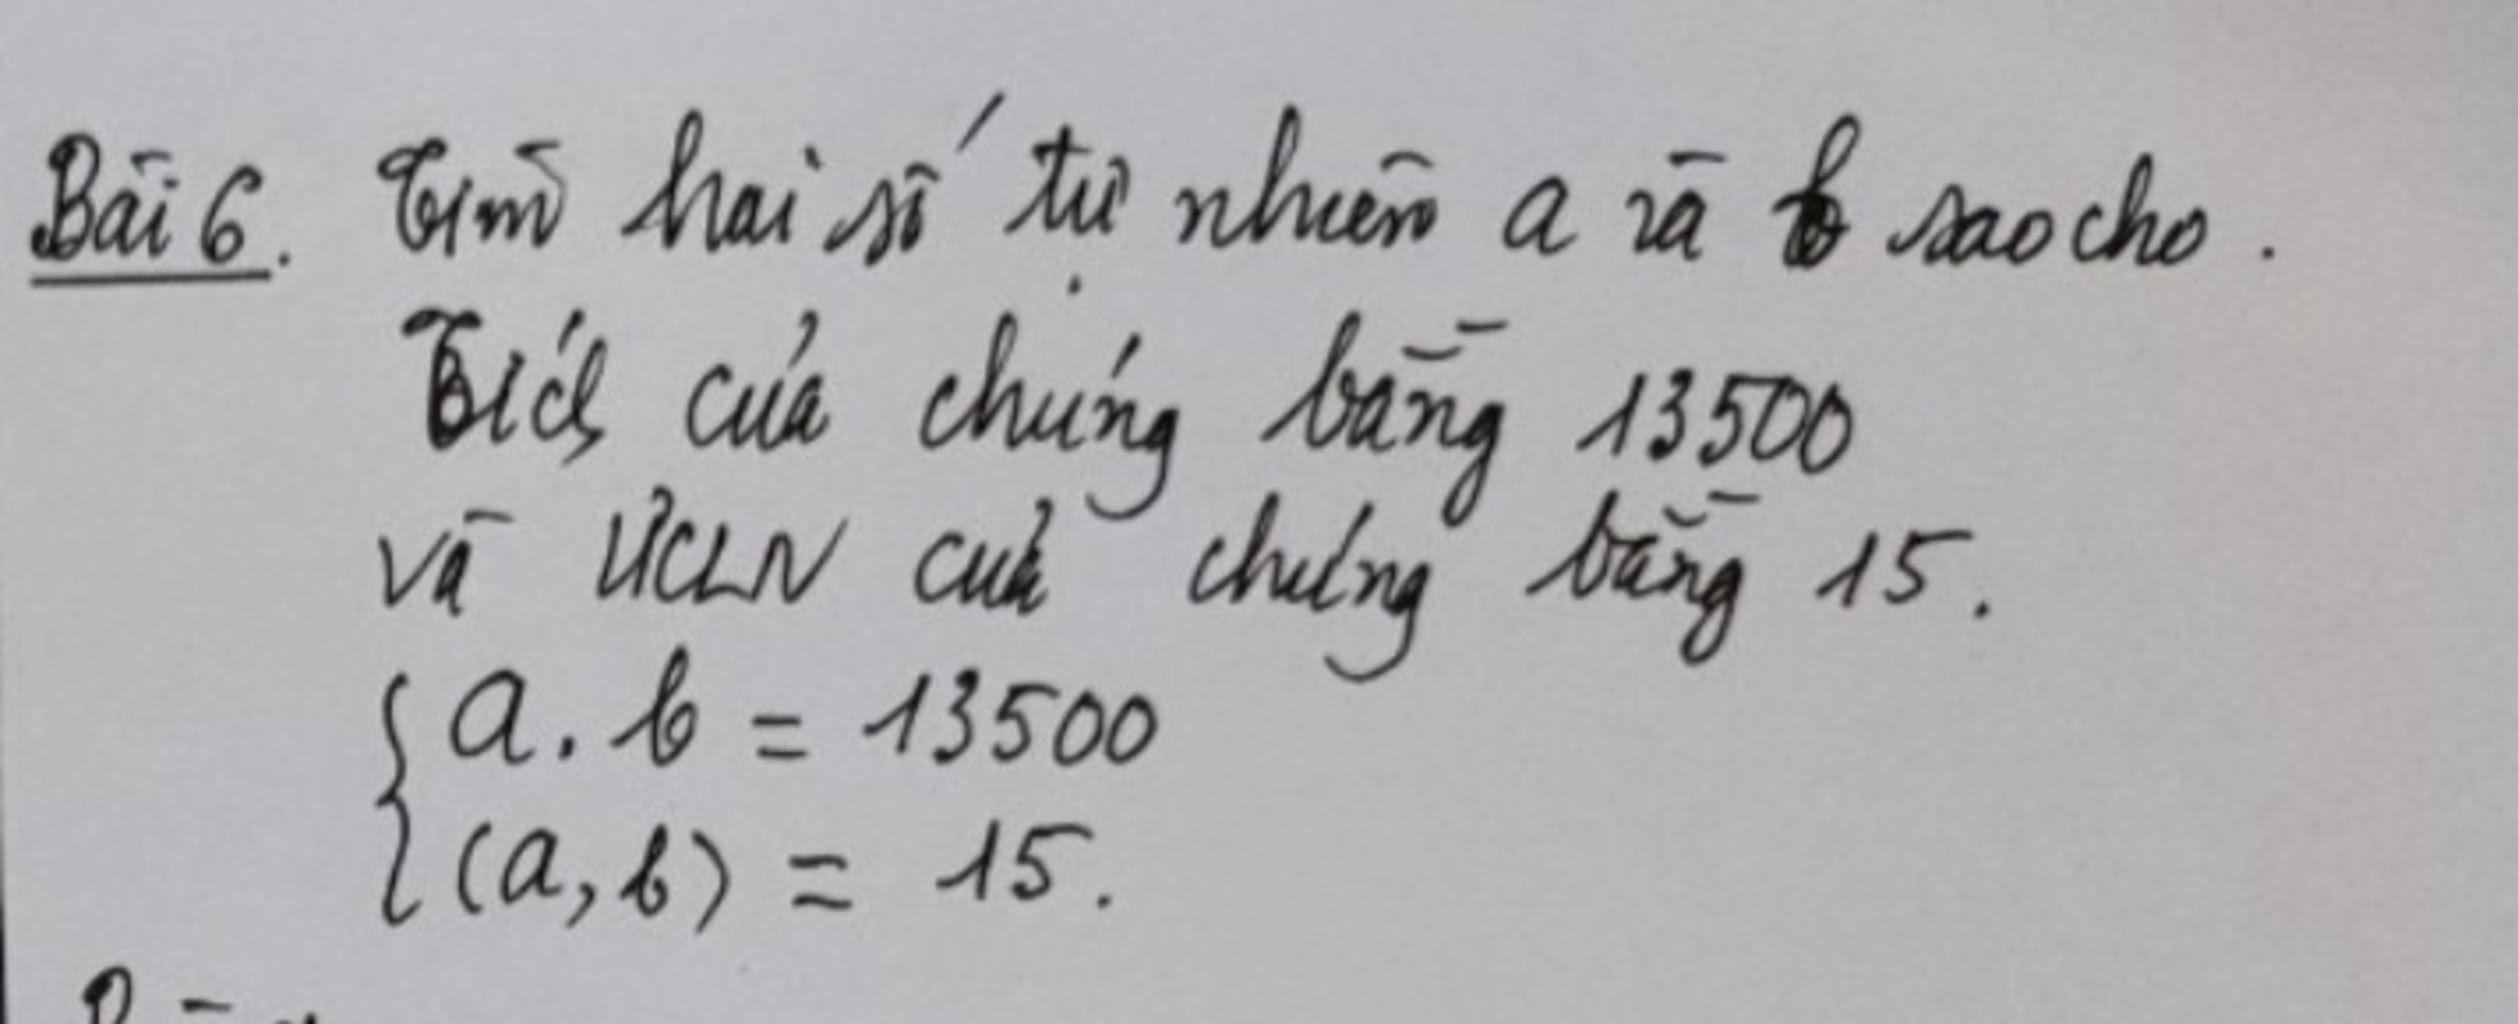 Bài 6. Tìm hai số tự nhiên a và b sao cho.
Tích của chúng bằng 13500
và ƯCLN của chúng bằng 15.
{ a. b = 13500
{ (a, b) = 15.